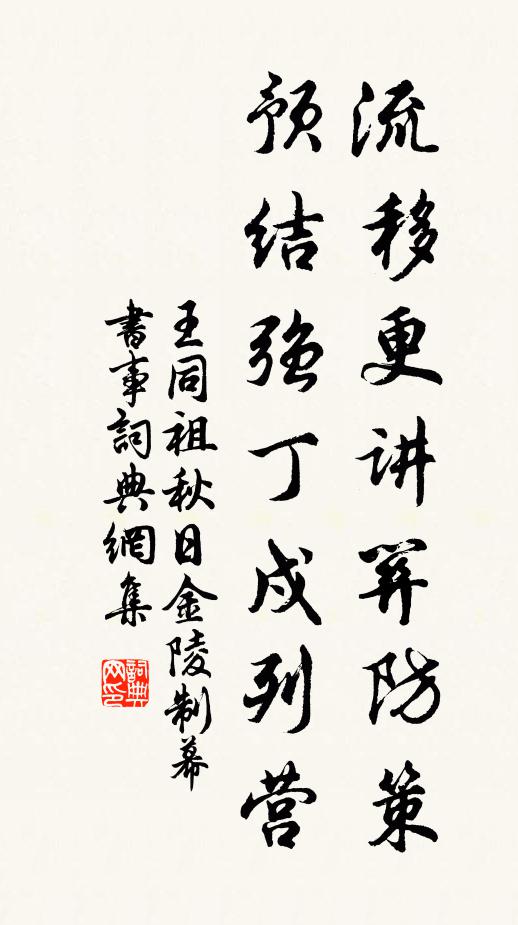 流移更讲关防策
预结强丁戍列营
王同祖秋日金陵制幕
書事詞典網集
詞典网印